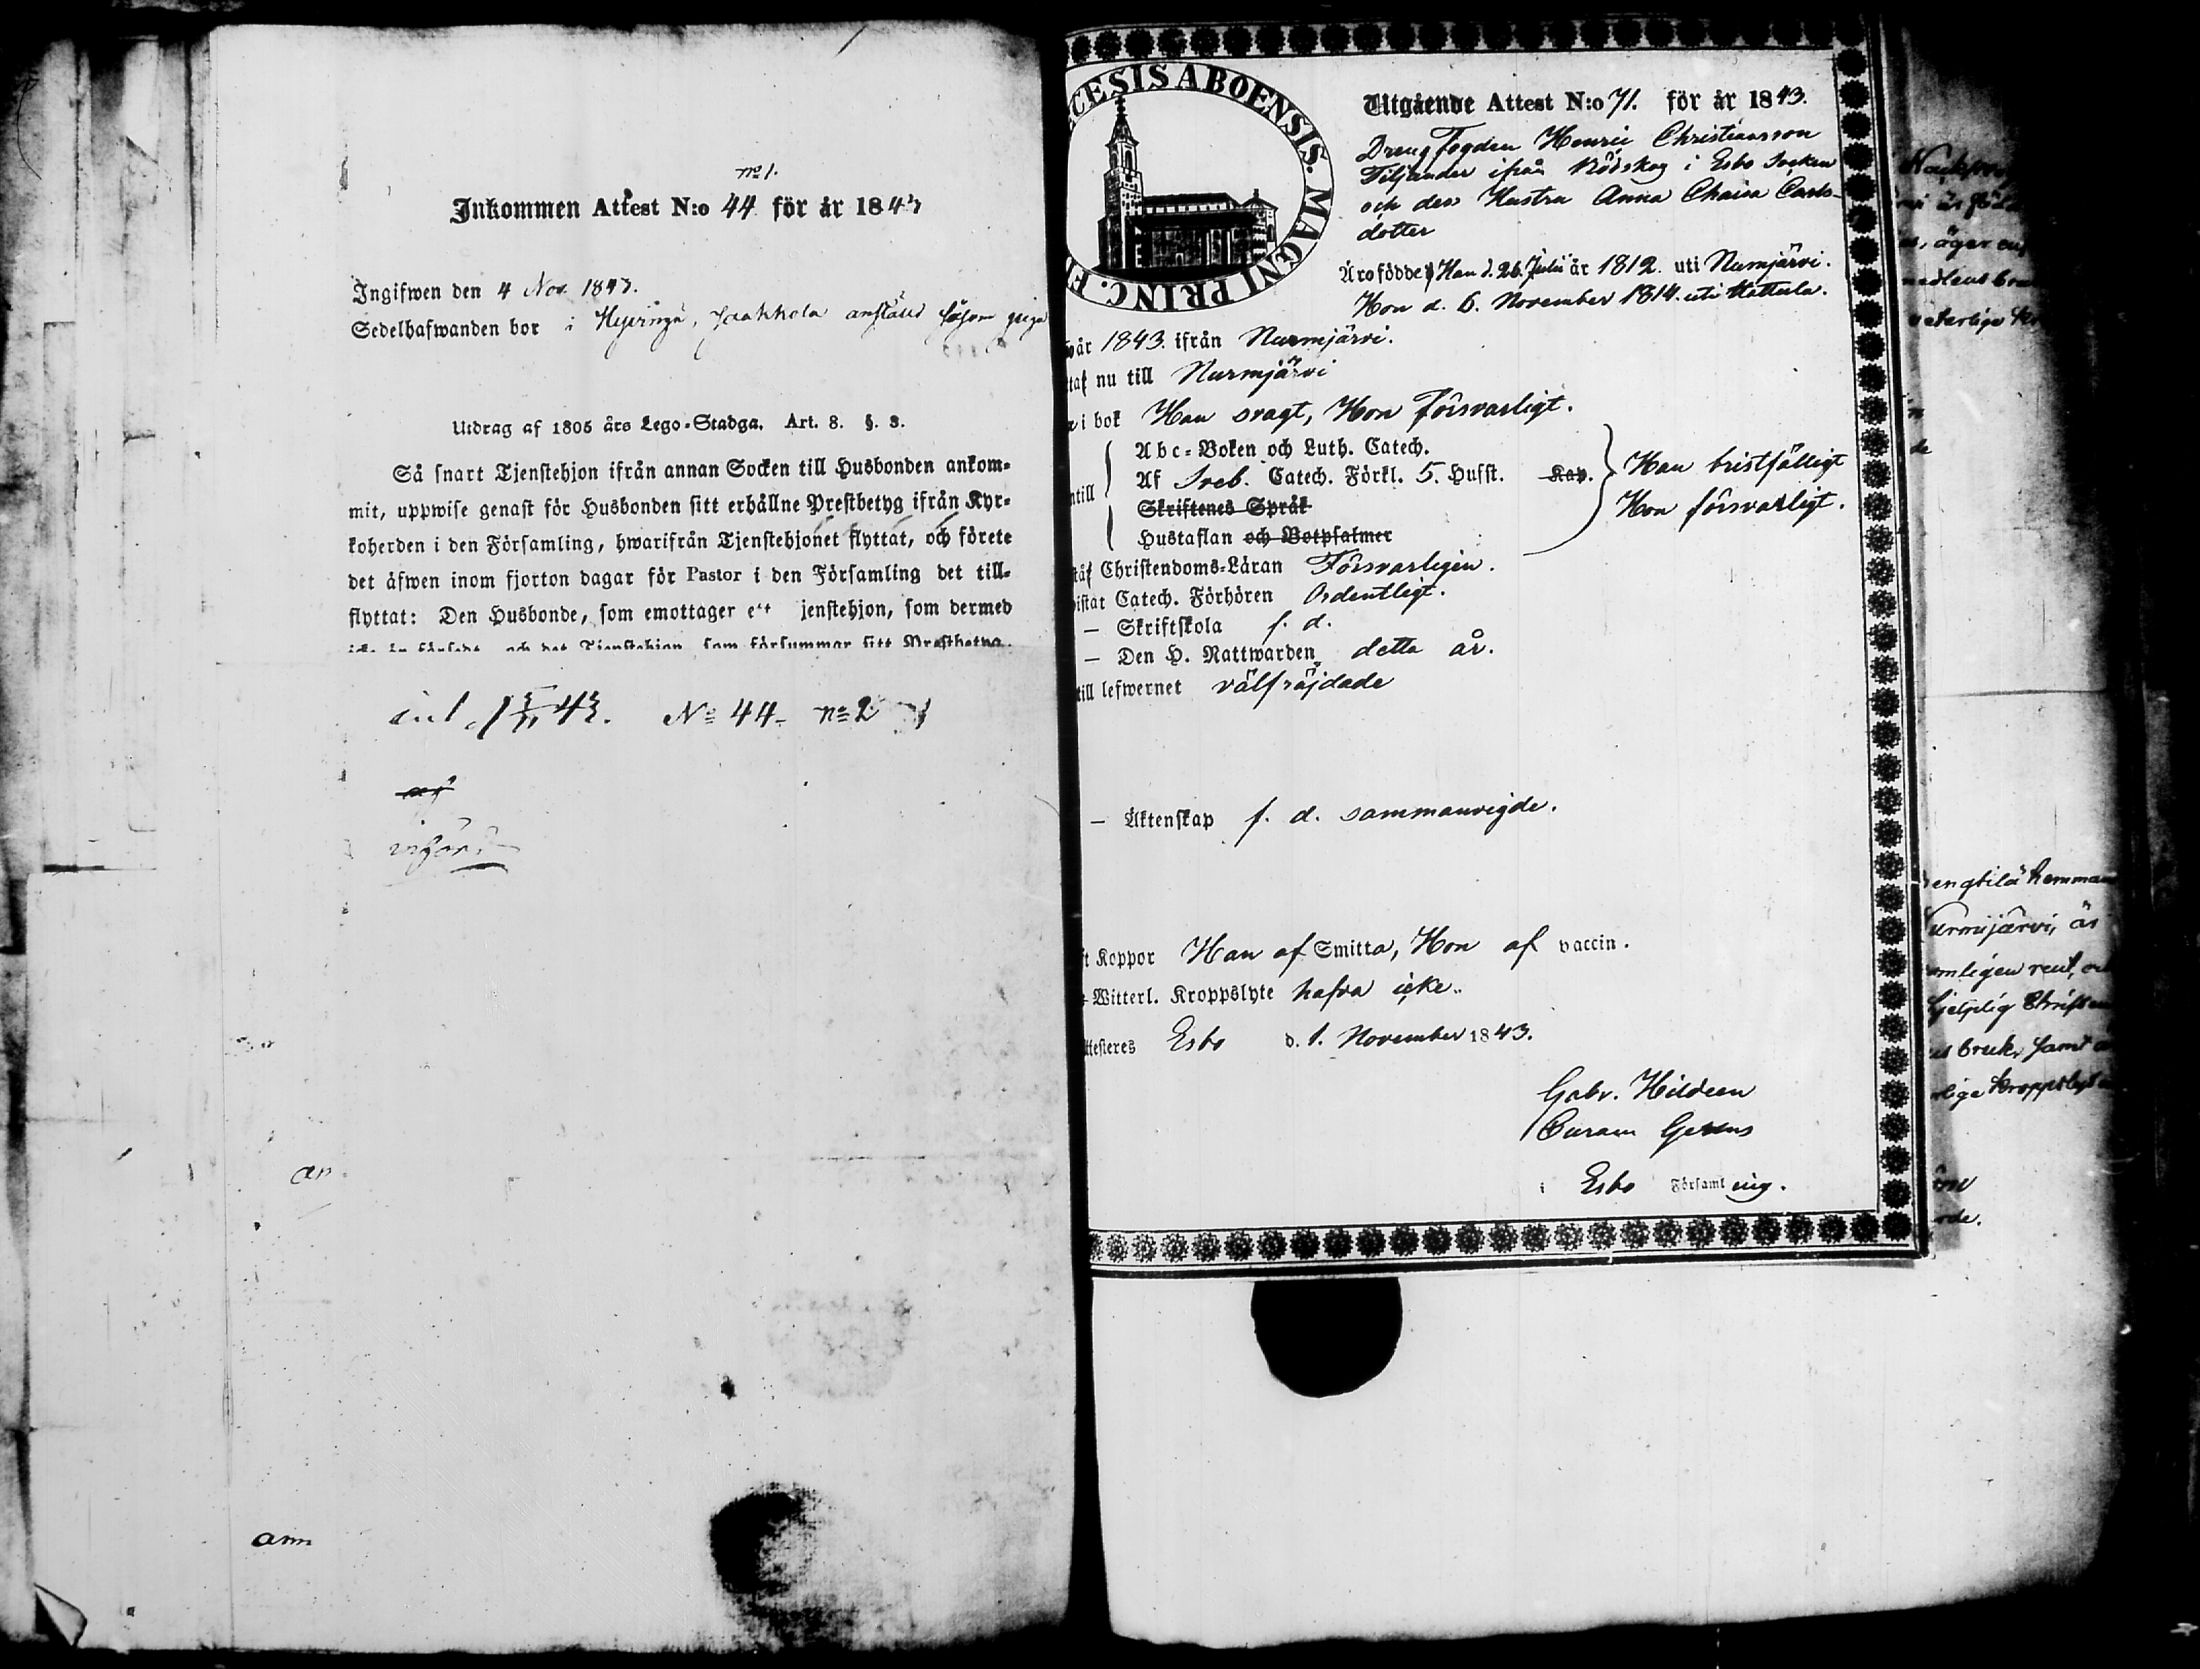 no 1.
Inkommen Attest N:o 44 för år 1843
Ingifwen den 4 Nov. 1843.
Sedelhafwanden bor i Hyvinge, Jaakkola anställd såsom piga
Utdrag af 1805 års Lego-Stadga. Art. 8. §. 3.
Så snart Tjenstehjon ifrån annan Socken till Husbonden ankom-
mit, uppwise genast för Husbonden sitt erhållne Prestbetyg ifrån Kyr-
koherden i den Församling, hwarifrån Tjenstehjonet flyttat, och förete
det äfwen inom fjorton dagar för Pastor i den Församling det till-
flyttat: Den Husbonde, som emottager ett jenstehjon, som dermed
och det Tjenstehjon som försummar sitt Prestbetyg.
43. No 44 - no 2
införd
an
ann
CESIS ABOENSIS. MAGNI PRINC. F
Utgående Attest N:o 71. för år 1843.
Drengfogden Henric Christiansson
Tiljander ifrån Nödskog i Esbo Socken
och des Hustru Anna Chaisa Carls-
dotter
Äro födde, Han d. 26. Julii år 1812. uti Nurmjärvi.
Hon d. 6. November 1814. uti Hattula.
år 1843. ifrån Nurmjärvi.
nu till Nurmjärvi
i bok Han svagt, Hon försvarligt.
Abc-Boken och Luth. Catech.
ntill Af Sveb. Catech. Förkl. 5. Hufst. Kap. Han bristfälligt
Skriftenes Språk Hon försvarligt.
Hustaflan och Botpsalmer
Christendoms-Läran Försvarligen.
istat Catech. Förhören Ordentligt.
— Skriftskola f. d.
— Den H. Nattwarden detta år.
till lefwernet välfräjdade
— Äktenskap f. d. sammanvigde.
t Koppor Han af Smitta, Hon af vaccin.
Witterl. Kroppslyte hafva icke.
ttesteres Esbo d. 1. November 1843.
Gabr. Hildeen
Curam Gerens
i Esbo Församling.
äger
n
de
engtilä hemman
urmijärvi, är
mligen rent, och
hjelplig
bruk, samt
rlige kroppslyt
rde.